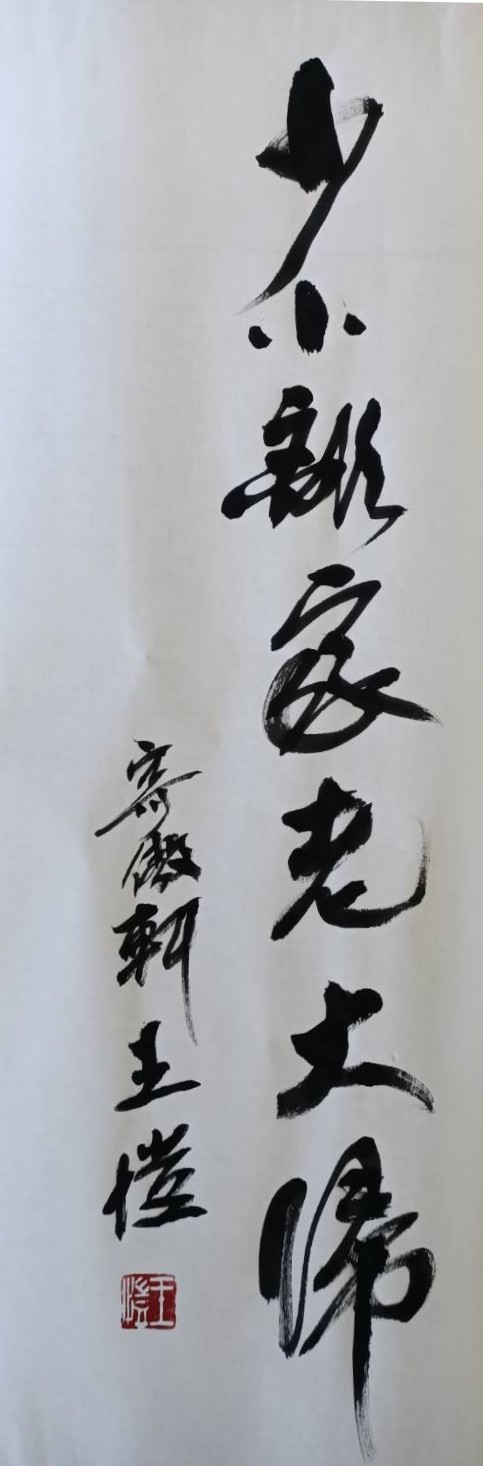 少小離家老大歸
寄傲軒王愷
王愷